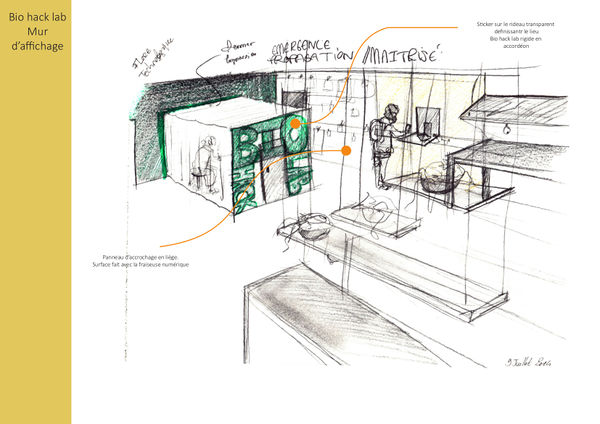 Bio hack lab
Mur
d'affichage
Sticker sur le rideau transparent
définissantr le lieu
Bio hack lab rigide en
accordéon
EMERGENCE
PROPAGATION /MAITRISÉ
BIO
Panneau d'accrochage en liège.
Surface fait avec la fraiseuse numérique